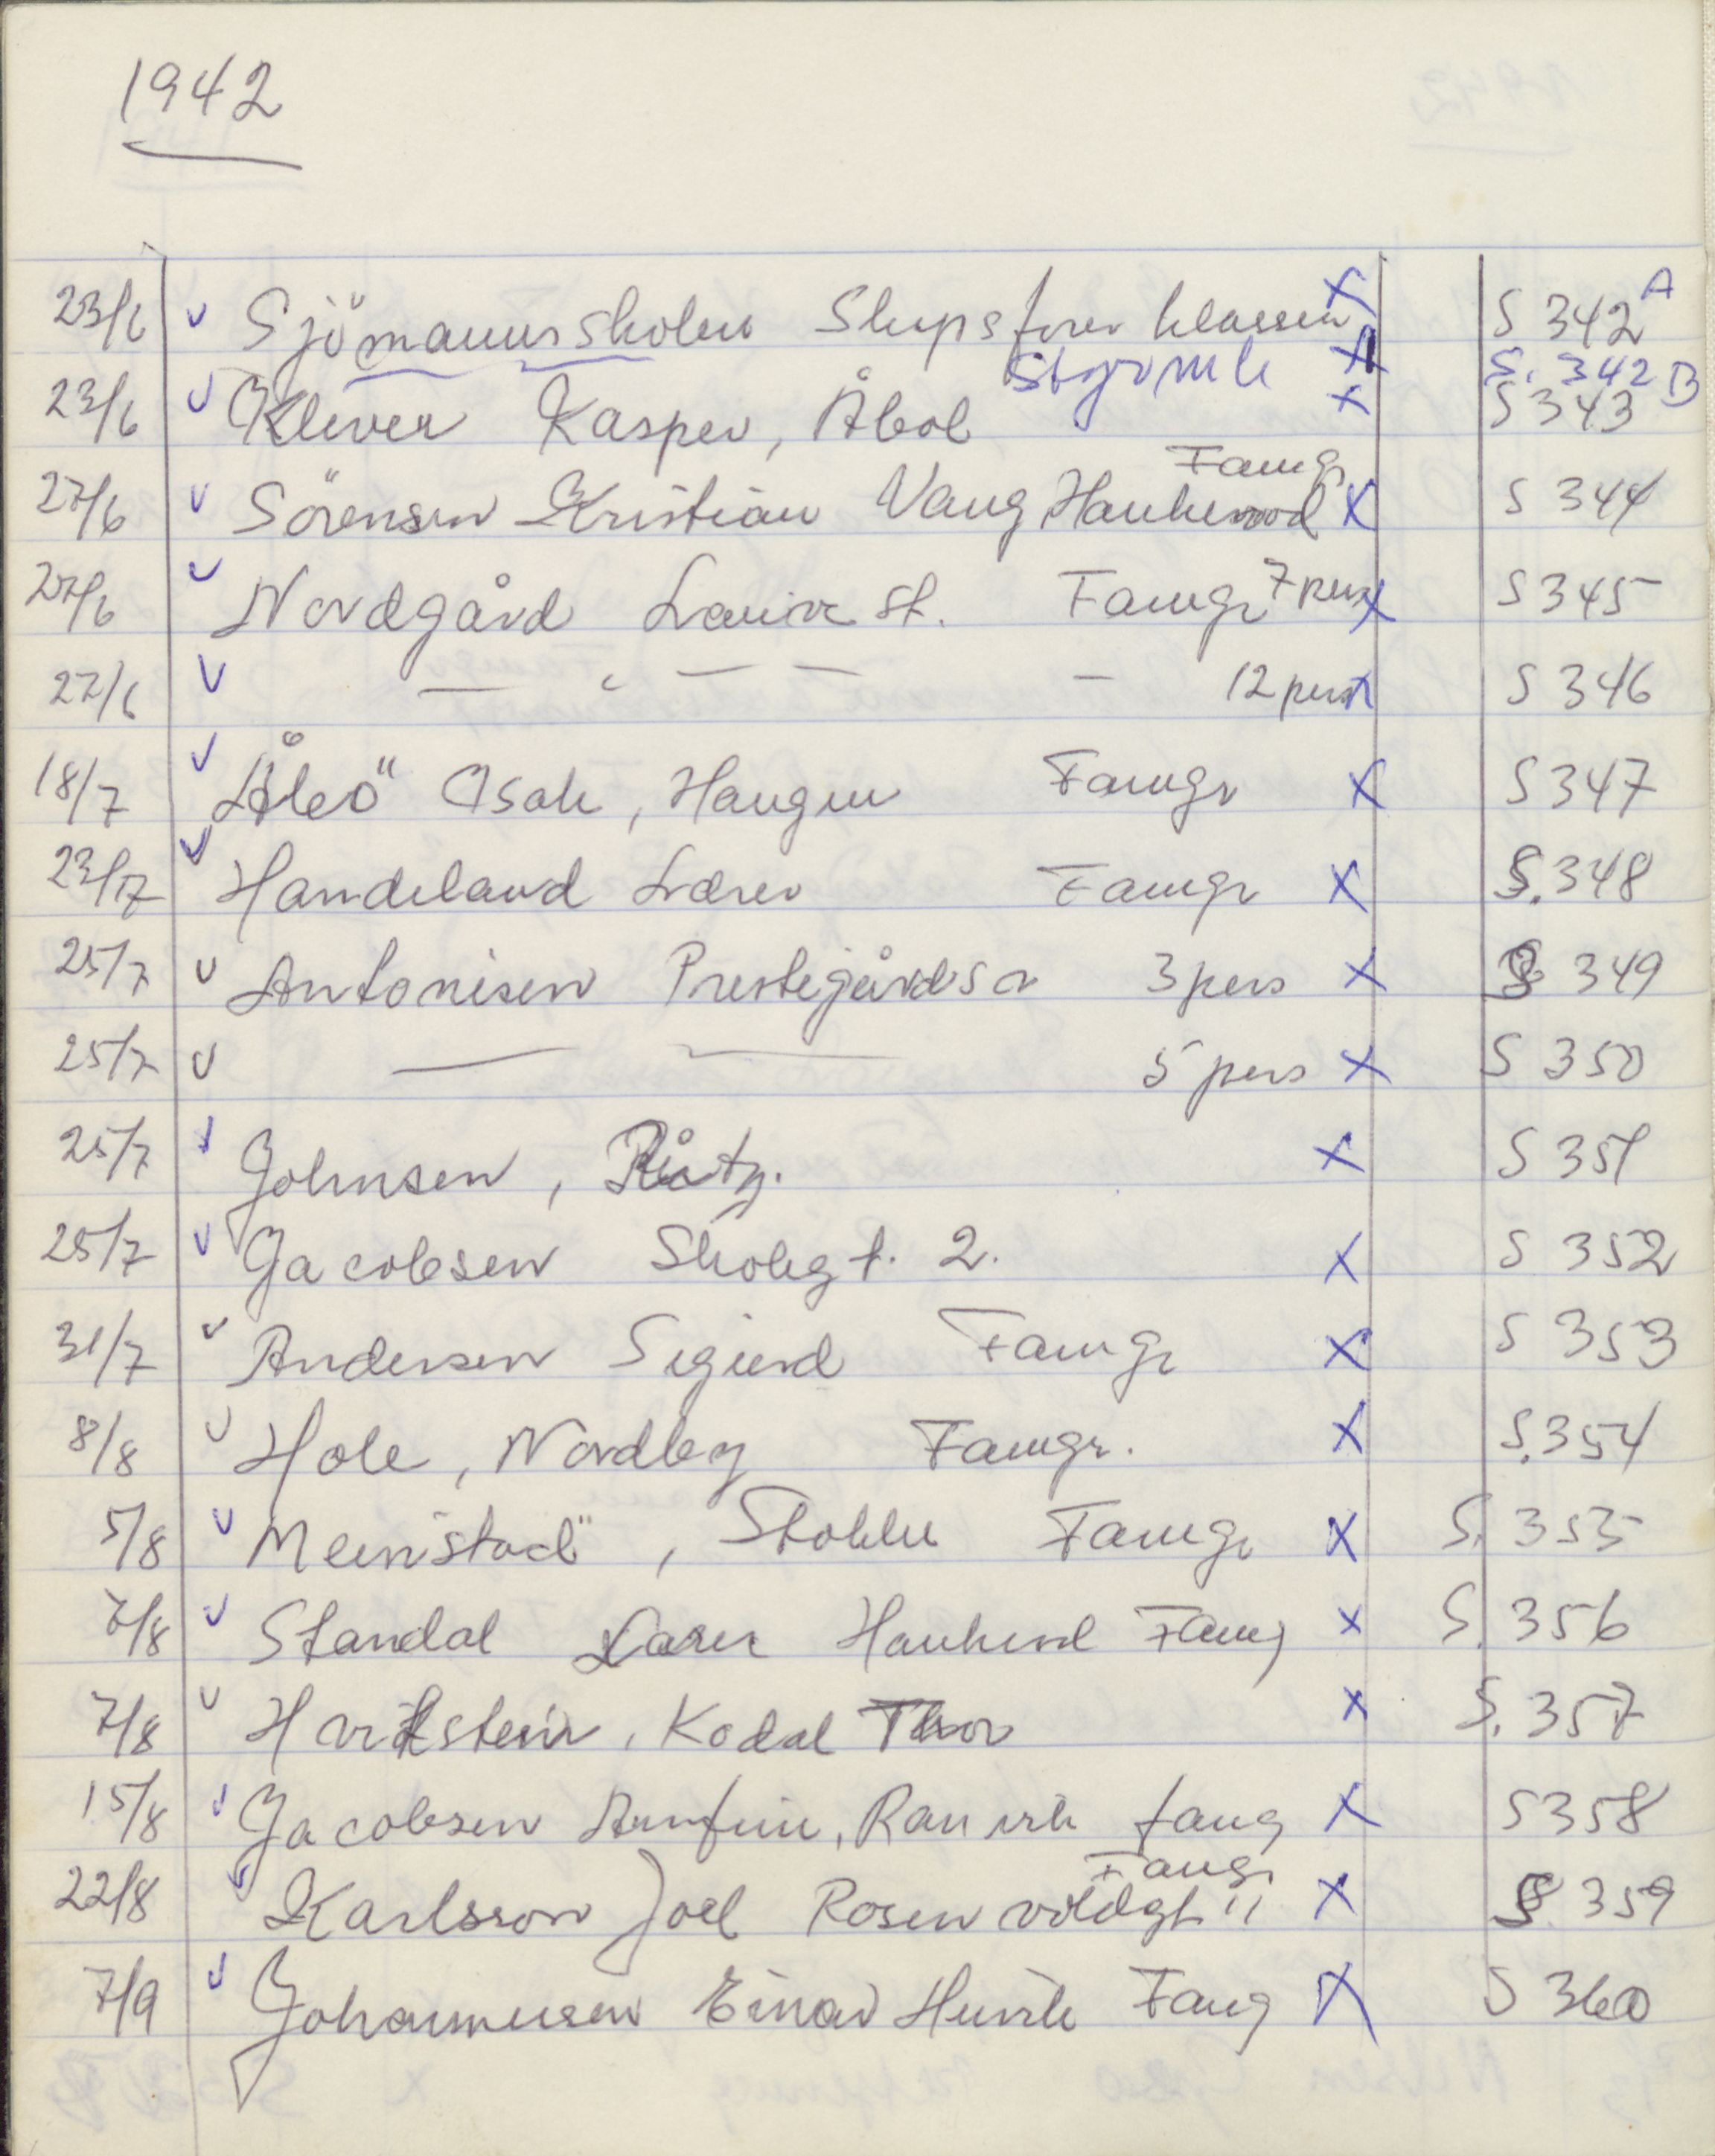 1942
23/6 v Sjömannsskolen Skipsfører klassen x S 342 A
Styrmk x S. 342 B
23/6 v Klever Kasper, Åbol x S 343
Famgr
27/6 v Sörensen Kristian Vaug Haukerød x S 344
27/6 v Nordgård st. Famgr 7 pers x S 345
27/6 v — " — — — 12 pers x S 346
18/7 v Åbö" Isak, Haugen Famgr x S 347
23/7 v Handeland Lærer Famgr x S. 348
25/7 v Antonisen Prestegårdsa 3 pers x S 349
25/7 v — — 5 pers x S 350
25/7 v Johnsen, x S 351
25/7 v Jacobsen Skolegt. 2. x S 352
31/7 v Andersen Sigurd Famgr x S 353
8/8 v Hole, Nordby Famgr. x S. 354
5/8 v Meinstad", Stokke Famgr x S. 355
7/8 v Standal Lærer Haukerød Famg x S. 356
7/8 v Hvitstein, Kodal Thor x S. 357
15/8 v Jacobsen Arnfinn, Ranvik famg x S 358
Famgr
22/8 v Karlsson Joel Rosenvoldgt 11 x S 359
7/9 v Johannessen Einar Hunik Famg x S 360